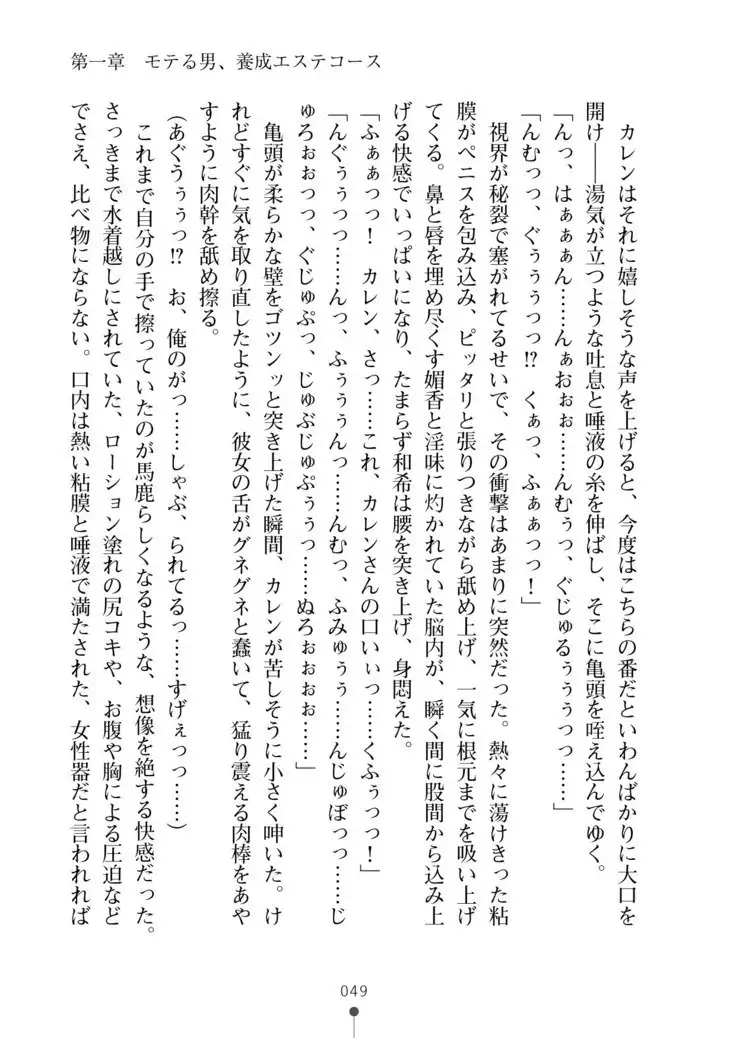 第一章　モテる男、養成エステコース
　カレンはそれに嬉しそうな声を上げると、今度はこちらの番だといわんばかりに大口を
開け――湯気が立つような吐息と唾液の糸を伸ばし、そこに亀頭を咥え込んでゆく。
「んっ、はぁぁぁん……んぁおぉぉ……んむぅっ、ぐじゅるぅぅぅっっ……」
「んむっっ、ぐぅぅぅっっ!?　くぁっ、ふぁぁっっ！」
　視界が秘裂で塞がれてるせいで、その衝撃はあまりに突然だった。熱々に蕩けきった粘
膜がペニスを包み込み、ピッタリと張りつきながら舐め上げ、一気に根元までを吸い上げ
てくる。鼻と唇を埋め尽くす媚香と淫味に灼かれていた脳内が、瞬く間に股間から込み上
げる快感でいっぱいになり、たまらず和希は腰を突き上げ、身悶えた。
「ふぁぁっっ！　カレン、さっ……これ、カレンさんの口いぃっ……くふぅっっ！」
「んぐぅぅっっ……んっ、ふぅぅぅんっ……んむっ、ふみゅぅぅ……んじゅぽっっ……じ
ゅろぉぉっっ、ぐじゅぷっ、じゅぶじゅぷぅぅっ……ぬろぉぉぉぉ……」
　亀頭が柔らかな壁をゴツンッと突き上げた瞬間、カレンが苦しそうに小さく呻いた。け
れどすぐに気を取り直したように、彼女の舌がグネグネと蠢いて、猛り震える肉棒をあや
すように肉幹を舐め擦る。
（あぐうぅぅっ!?　お、俺のがっ……しゃぶ、られてるっ……すげぇっっ……）
　これまで自分の手で擦っていたのが馬鹿らしくなるような、想像を絶する快感だった。
さっきまで水着越しにされていた、ローション塗れの尻コキや、お腹や胸による圧迫など
でさえ、比べ物にならない。口内は熱い粘膜と唾液で満たされた、女性器だと言われれば
049